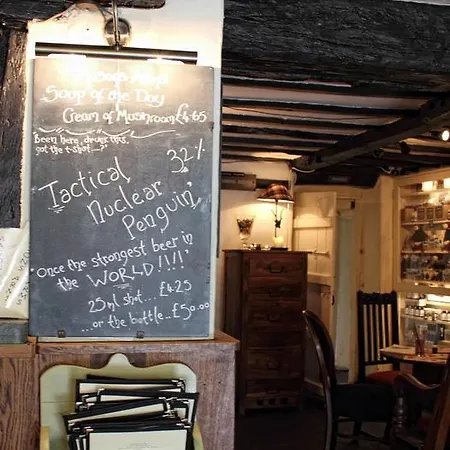 Soup of the Day
Cream of Mushroom £4.65
'Been here, drunk this,
got the t-shot....'
32%
'Tactical
Nuclear
Penguin'
'Once the strongest beer in
the WORLD!!!!'
25ml shot... £4.25
...or the bottle...£50.00